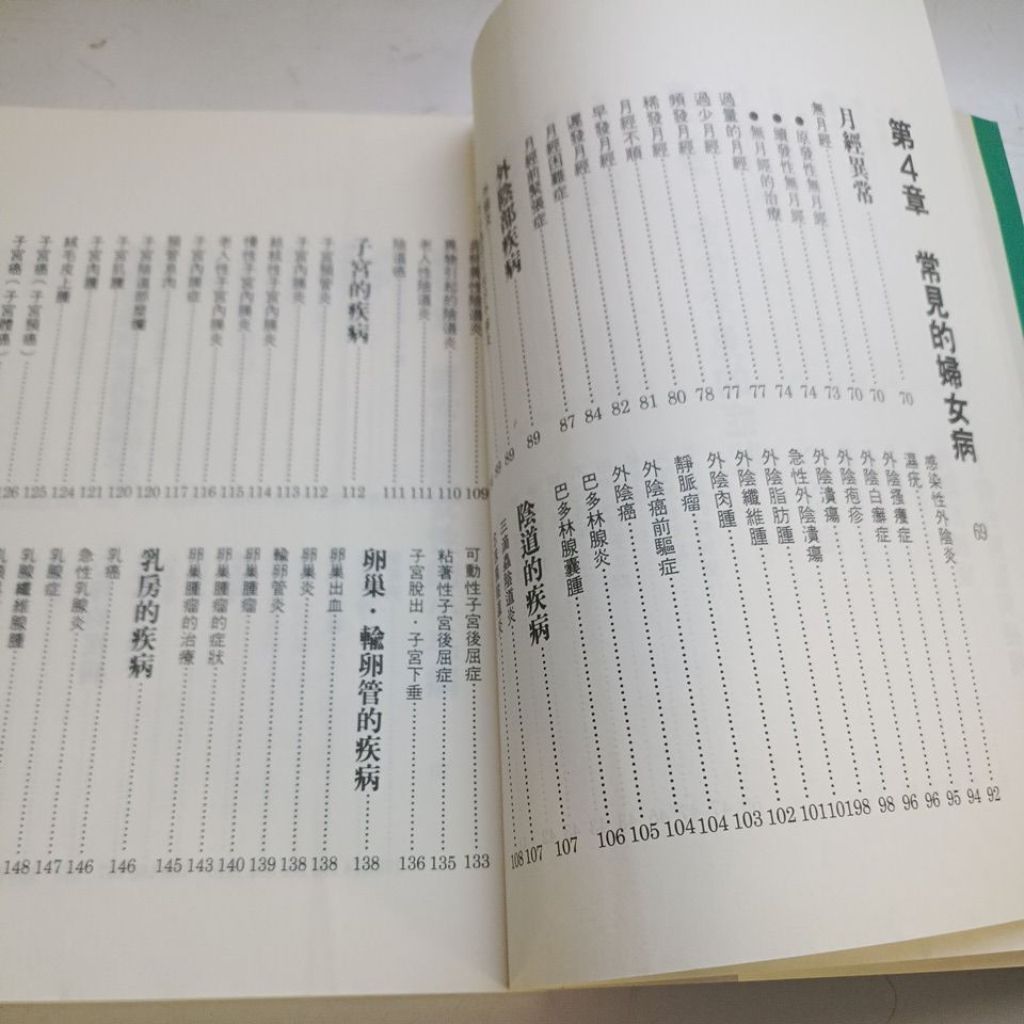 第4章 常見的婦女病 69
月經異常 70
無月經 70
●原發性無月經 70
●續發性無月經 73
●無月經的治療 74
過量的月經 74
過少月經 77
頻發月經 77
稀發月經 78
月經不順 80
早發月經 81
遲發月經 82
月經困難症 84
月經前緊張症 87
外陰部疾病 89
89
89
感染性外陰炎 92
濕疣 94
外陰搔癢症 95
外陰白癬症 96
外陰疱疹 96
外陰潰瘍 98
急性外陰潰瘍 98
外陰脂肪腫 101
外陰纖維腫 101
外陰肉腫 102
靜脈瘤 103
外陰癌前驅症 104
外陰癌 104
巴多林腺炎 105
巴多林腺囊腫 106
陰道的疾病 107
陰道炎 107
108
109
異物引起的陰道炎 110
老人性陰道炎 111
陰道癌 111
子宮的疾病 112
子宮頸管炎 112
子宮內膜炎 113
結核性子宮內膜炎 114
慢性子宮內膜炎 115
老人性子宮內膜炎 116
子宮內膜症 117
頸管息肉 120
子宮陰道部糜爛 120
子宮肌腫 121
子宮肉腫 124
絨毛皮上腫 125
子宮癌(子宮頸癌) 126
子宮癌(子宮體癌)
可動性子宮後屈症 133
粘著性子宮後屈症 135
子宮脫出・子宮下垂 136
卵巢・輸卵管的疾病 138
卵巢出血 138
卵巢炎 138
輸卵管炎 139
卵巢腫瘤 140
卵巢腫瘤的症狀 143
卵巢腫瘤的治療 145
乳房的疾病 146
乳癌 146
急性乳腺炎 147
乳腺症 148
乳腺纖維腺腫